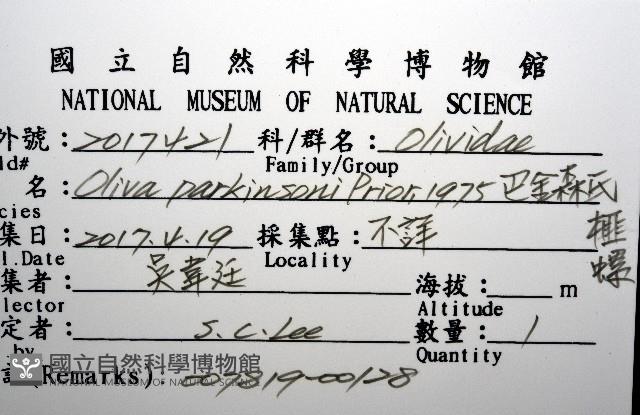 國立自然科學博物館
NATIONAL MUSEUM OF NATURAL SCIENCE
外號: 2017421 科/群名: Olividae
ld# Family/Group
名: Oliva parkinsoni Prior, 1975 巴金森氏榧螺
cies
集日: 2017.4.19 採集點: 不詳
l.Date Locality
集者: 吳韋廷 海拔: m
lector Altitude
定者: S.C.Lee 數量: 1
by Quantity
(Remarks) 007819-00128
國立自然科學博物館
NATIONAL MUSEUM OF NATURAL SCIENCE